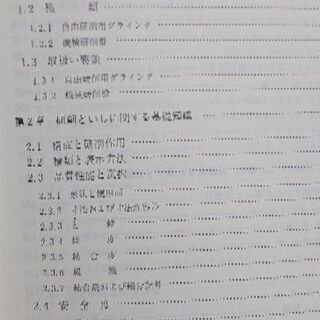 1.2 種類
1.2.1 自由研削用グラインダ
1.2.2 機械研削盤
1.3 取扱い要領
1.3.1 自由研削用グラインダ
1.3.2 機械研削盤
第2章 研削といしに関する基礎知識
2.1 構成と研削作用
2.2 種類と表示方法
2.3 品質性能と選択
2.3.1 形状と使用面
2.3.2 寸法および寸法許容差
2.3.3 と粒
2.3.4 粒度
2.3.5 結合度
2.3.6 組織
2.3.7 結合剤および細分記号
2.4 安全度